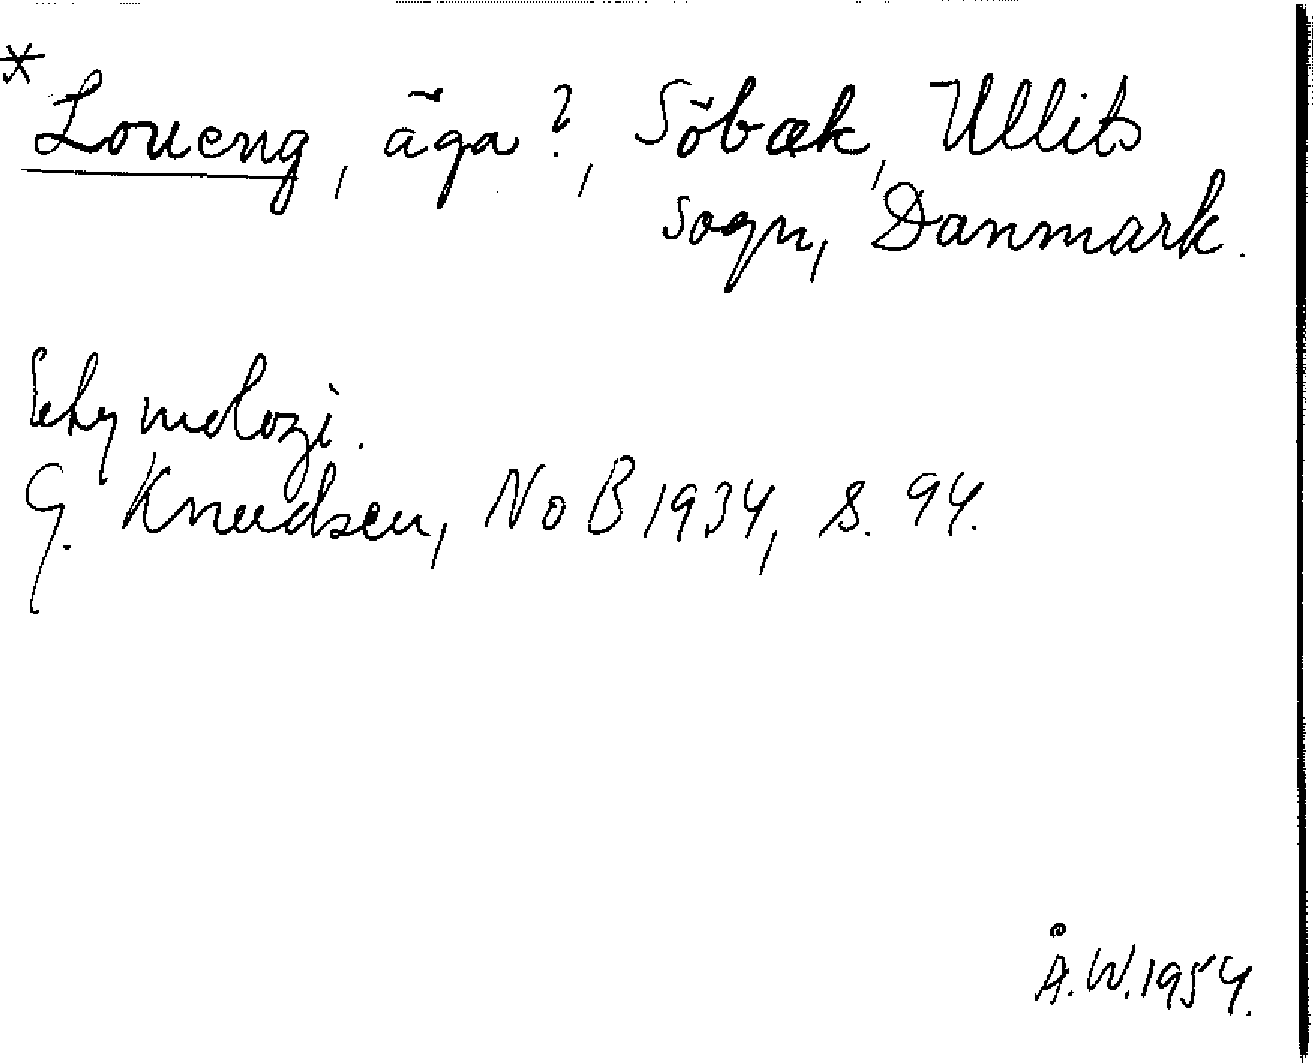 * Loueng, äga?, Söbæk, Ullits
sogn, Danmark.
Etymologi.
G. Knudsen, NoB 1934, s. 94.
Å.W. 1954.